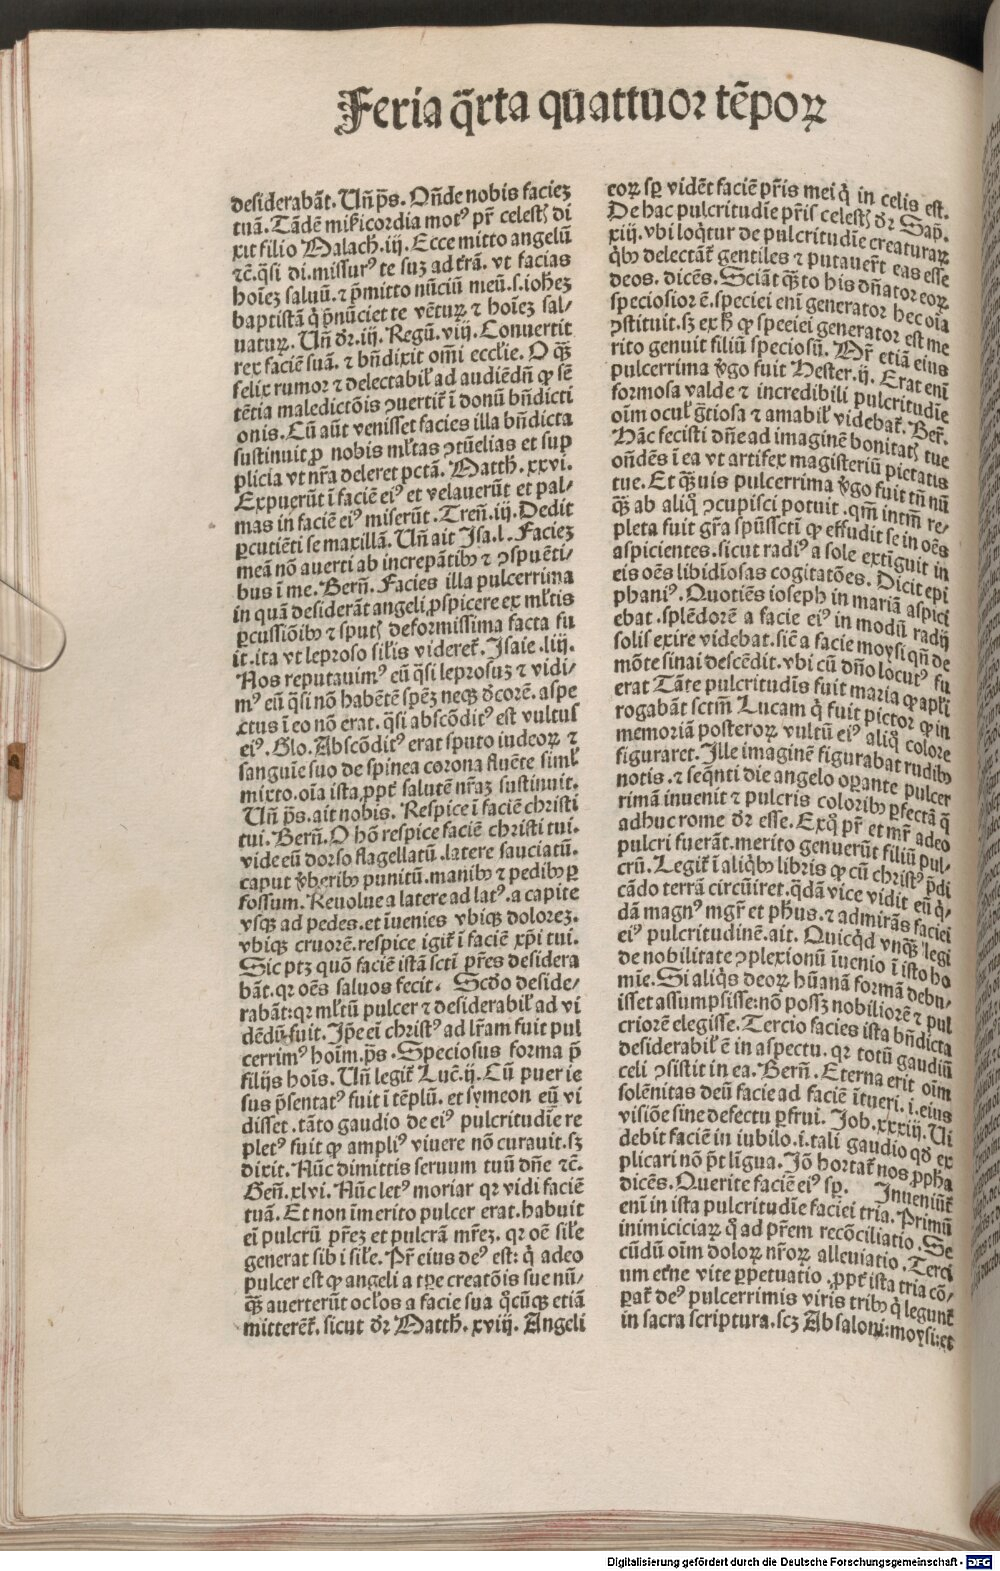 Feria q̄rta quattuor tēpoꝝ
desiderabāt. Uñ p̄s. Oñde nobis faciez
tuā. Tādē mīicordia motꝰ pr̄ celestꝭ di
xit filio Malach̄. iij. Ecce mitto angelū
⁊c̄. q̄si di. missurꝰ te suꝫ ad trā̄. vt facias
hoīeꝫ saluū. ⁊ p̄mitto nūciū meū. s. ioh̄eꝫ
baptistā q̇ p̄nūciet te vētuꝝ ⁊ hoīeꝫ sal⸗
uatuꝝ. Uñ dr̄. iij. Regū. viij. Conuertit
rex faciē suā. ⁊ bn̄dixit om̄i eccl̄ie. O q̄ꝫ
felix rumor ⁊ delectabil̓ ad audiēdū ꝙ sē
tētia maledictōis ꝯuertit᷑ ī donū bn̄dicti
onis. Cū aūt venisset facies illa bn̄dicta
sustinuit ꝓ nobis ml̓tas ꝯtūelias et sup
plicia vt nr̄a deleret pctā. Matth̄. xxvi.
Expuerūt ī faciē eiꝰ et velauerūt et pal⸗
mas in faciē eiꝰ miserūt. Treñ. iij. Dedit
ꝑcutiēti se maxillā. Uñ ait Isa. l. Facieꝫ
meā nō auerti ab increpātibꝰ ⁊ ꝯspuēti⸗
bus ī me. Berñ. Facies illa pulcerrima
in quā desiderāt angeli ꝓspicere ex ml̓tis
ꝑcussiōibꝰ ⁊ sputꝭ deformissima facta fu
it. ita vt leproso sil̓is videret᷑. Isaie. liij.
Nos reputauimꝰ eū q̄si leprosuꝫ ⁊ vidi⸗
mꝰ eū q̄si nō habētē spēꝫ neqꝫ dcorē. aspe
ctus ī eo nō erat. q̄si abscōditꝰ est vultus
eiꝰ. Glo. Abscōditꝰ erat sputo iudeoꝝ ⁊
sanguīe suo de spinea corona fluēte siml̓
mixto. oīa ista ꝓpt᷑ salutē nr̄aꝫ sustinuit.
Uñ p̄s. ait nobis. Respice ī faciē christi
tui. Berñ. O hō respice faciē christi tui.
vide eū dorso flagellatū. latere sauciatū.
caput vberibꝰ punitū. manibꝰ ⁊ pedibꝰ ꝑ
fossum. Reuolue a latere ad latꝰ. a capite
vsqꝫ ad pedes. et īuenies vbiqꝫ doloreꝫ.
vbiqꝫ cruorē. respice igit᷑ ī faciē xp̄i tui.
Sic ptꝫ quō faciē istā sctī pr̄es desidera
bāt. qꝛ oēs saluos fecit. Scd̄o deside⸗
rabāt: qꝛ ml̓tū pulcer ⁊ desiderabil̓ ad vi
dēdū fuit. Ip̄e eī christꝰ ad lr̄am fuit pul
cerrimꝰ hoīm. p̄s. Speciosus forma p̄
filijs hoīs. Uñ legit᷑ Luc̄. ij. Cū puer ie
sus p̄sentatꝰ fuit ī tēplū. et symeon eū vi
disset. tāto gaudio de eiꝰ pulcritudīe re
pletꝰ fuit ꝙ ampliꝰ viuere nō curauit. sꝫ
dixit. Nūc dimittis seruum tuū dn̄e ⁊c̄.
Geñ. xlvi. Nūc letꝰ moriar qꝛ vidi faciē
tuā. Et non īmerito pulcer erat. habuit
eī pulcrū pr̄eꝫ et pulcrā mr̄eꝫ. qꝛ oē sil̓e
generat sibi sil̓e. Pr̄ eius deꝰ est: q̇ adeo
pulcer est ꝙ angeli a tp̄e creatōis sue nū⸗
q̄ꝫ auerterūt ocl̓os a facie sua q̇cūqꝫ etiā
mitterēt᷑. sicut dr̄ Matth̄. xviij. Angeli
eoꝝ sp̄ vidēt faciē pr̄is mei q̇ in celis est.
De hac pulcritudīe pr̄is celestꝭ dr̄ Sap̄.
xiij. vbi loq̇tur de pulcritudīe creaturaꝝ
q̇bꝰ delectāt᷑ gentiles ⁊ putauer̄t eas esse
deos. dicēs. Sciāt q̄ꝫto his dn̄ator eoꝝ
speciosior ē. speciei enī generator hec oīa
ꝯstituit. sꝫ ex h̄ ꝙ speciei generator est me
rito genuit filiū speciosū. Mr̄ etiā eius
pulcerrima v̓go fuit Hester. ij. Erat enī
formosa valde ⁊ incredibili pulcritudie
oīm ocul̓ gr̄tiosa ⁊ amabil̓ videbat᷑. Ber̄.
Hāc fecisti dn̄e ad imaginē bonitatꝭ tue
on̄dēs ī ea vt artifex magisteriū pietatis
tue. Et q̄ꝫuis pulcerrima v̓go fuit tn̄ nū
q̄ꝫ ab aliq̊ ꝯcupisci potuit. qm̄ intm̄ re⸗
pleta fuit gr̄a spūssctī ꝙ effudit se in oēs
aspicientes. sicut radiꝰ a sole extīguit in
eis oēs libidīosas cogitatōes. Dicit epi
phaniꝰ. Quotiēs ioseph in mariā aspici
ebat. splēdorē a facie eiꝰ in modū radij
solis exire videbat. sic̄ a facie moysi qn̄ de
mōte sinai descēdit. vbi cū dn̄o locutꝰ fu
erat Tāte pulcritudīs fuit maria ꝙ apl̓i
rogabāt sctm̄ Lucam q̇ fuit pictor ꝙ in
memoriā posteroꝝ vultū eiꝰ aliq̊ colore
figuraret. Ille imaginē figurabat rudibꝰ
notis. ⁊ seq̄nti die angelo oꝑante pulcer
rimā inuenit ⁊ pulcris coloribꝰ ꝑfectā q̄
adhuc rome dr̄ esse. Exq̊ pr̄ et mr̄ adeo
pulcri fuerāt. merito genuerūt filiū pul⸗
crū. Legit᷑ ī aliq̇bꝰ libris ꝙ cū christꝰ p̄di
cādo terrā circūiret. q̄dā vice vidit eū q̇⸗
dā magnꝰ mgr̄ et ph̄us. ⁊ admirās faciei
eiꝰ pulcritudinē. ait. Quicq̇d vnq̄ꝫ legi
de nobilitate ꝯplexionū īuenio ī isto ho
mīe. Si aliq̇s deoꝝ hūanā formā debu⸗
isset assumpsisse: nō possꝫ nobiliorē ⁊ pul
criorē elegisse. Tercio facies ista bn̄dicta
desiderabil̓ ē in aspectu. qꝛ totū gaudiū
celi ꝯsistit in ea. Berñ. Eterna erit oīm
solēnitas deū facie ad faciē ītueri. i. eius
visiōe sine defectu ꝑfrui. Job. xxxiij. Ui
debit faciē in iubilo. i. tali gaudio qd̄ ex
plicari nō pt̄ līgua. Jō hortat᷑ nos ꝓph̄a
dicēs. Querite faciē eiꝰ sp̄. Inueniūt᷑
enī in ista pulcritudīe faciei tria. Primū
inimiciciaꝝ q̄ ad pr̄em recōciliatio. Se
cūdū oīm doloꝝ nr̄oꝝ alleuiatio. Terci
um et̄ne vite ꝑpetuatio. ꝓpt᷑ ista tria cō⸗
ꝑat᷑ deꝰ pulcerrimis viris tribꝰ q̇ legunt᷑
in sacra scriptura. scꝫ Absaloni: moysi: et
Digitalisierung gefördert durch die Deutsche Forschungsgemeinschaft - DFG